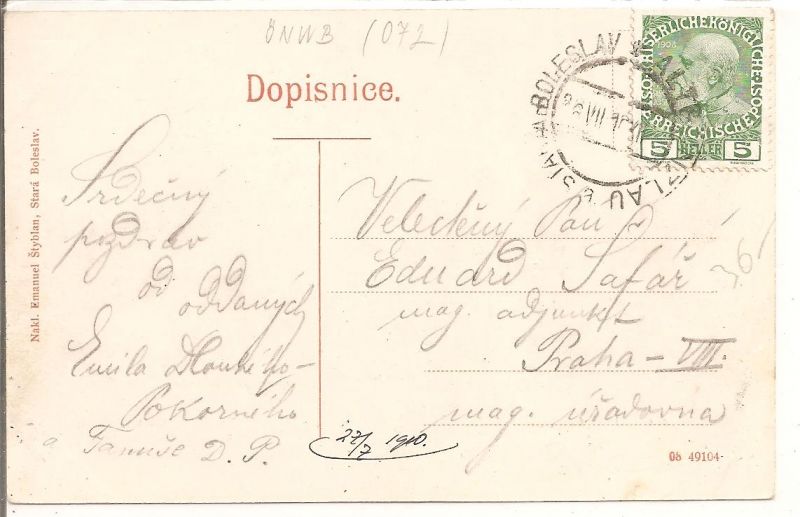 ÖNWB (072)
Dopisnice.
BOLESLAV
26 VII 10
KAISERLICHEKÖNIGLICHE
1908
ÖSTERREICHISCHE POST
5 HELLER 5
Nakl. Emanuel Štyblan, Stará Boleslav.
Srdečný
pozdrav
od oddaných
Emila Dlouhého-
Pokorného
a Fanuše D. P.
Velectěný Pan
Eduard Šafář
mag. adjunkt
Praha-VIII.
mag. úřadovna
27/7 1910.
08 49104